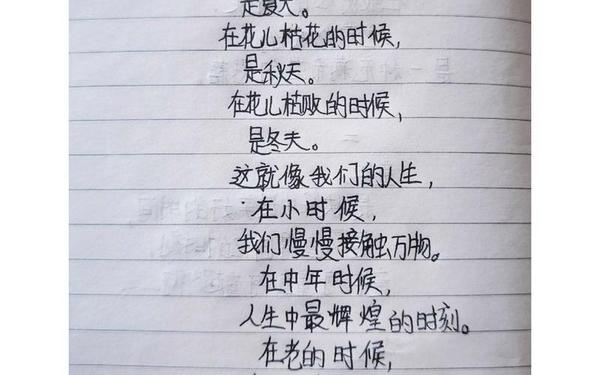 是夏天。
在花儿枯花的时候，
是秋天。
在花儿枯败的时候，
是冬天。
这就像我们的人生，
在小时候，
我们慢慢接触万物。
在中年时候，
人生中最辉煌的时刻。
在老的时候，